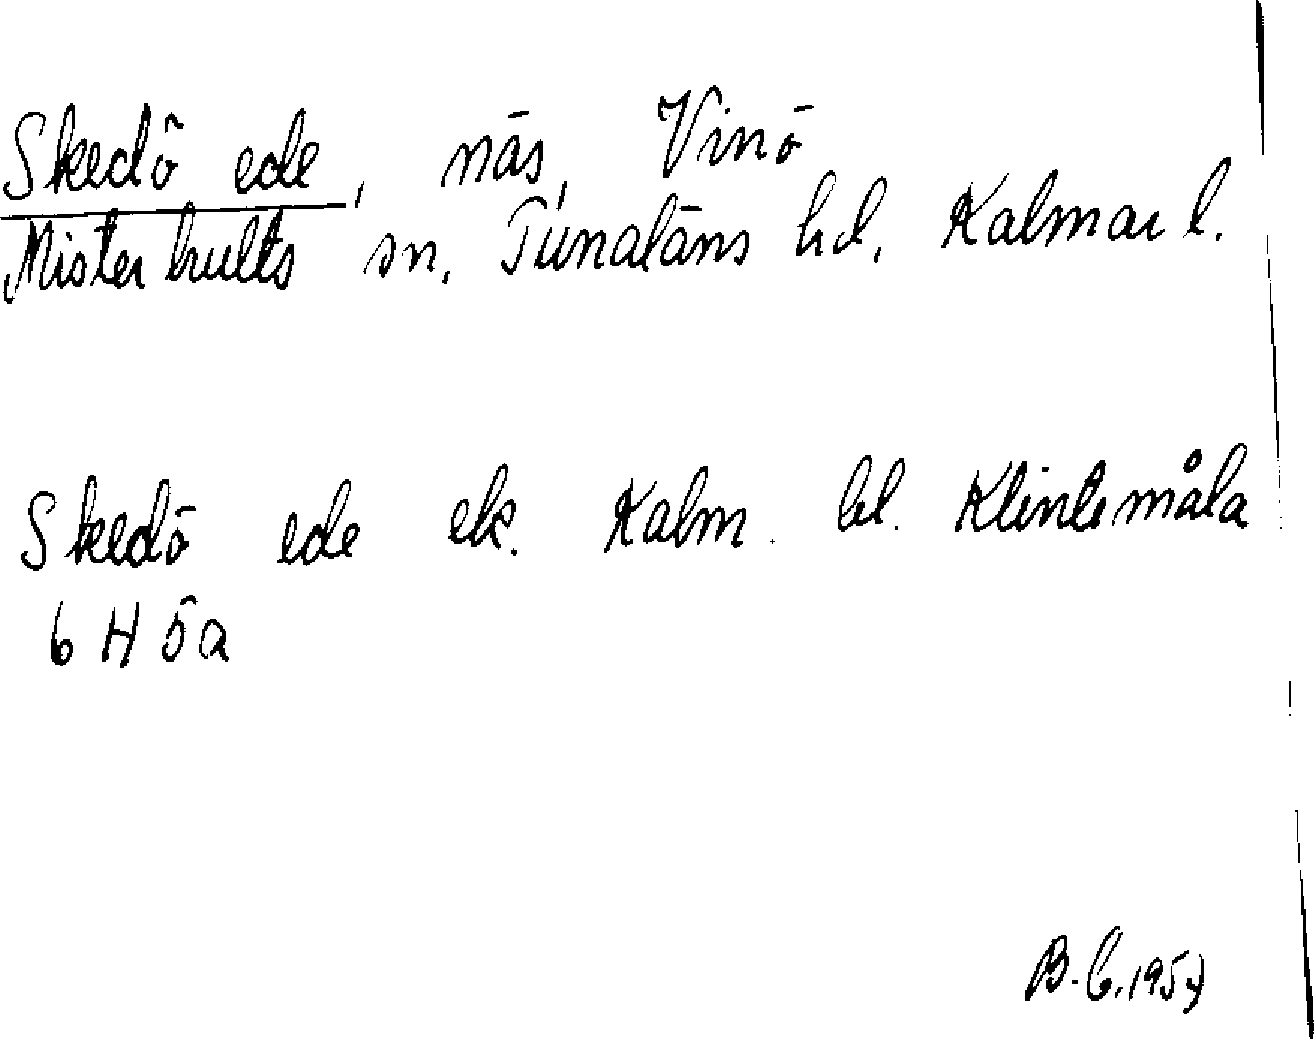 Skedö ede, näs, Vinö
Misterhults sn, Tunaläns hd, Kalmar l.
Skedö ede ek. Kalm. bl. Klintemåla
6 H 5a
B.C. 1954